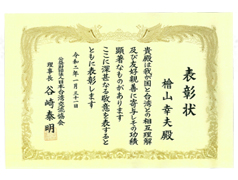 表彰状
檜山幸夫殿
貴殿は我が国と台湾との相互理解
及び友好親善に寄与しその功績
顕著なものがあります
ここに深甚なる敬意を表すると
ともに表彰します
令和二年一月三十一日
公益財団法人日本台湾交流協会
理事長 谷崎泰明